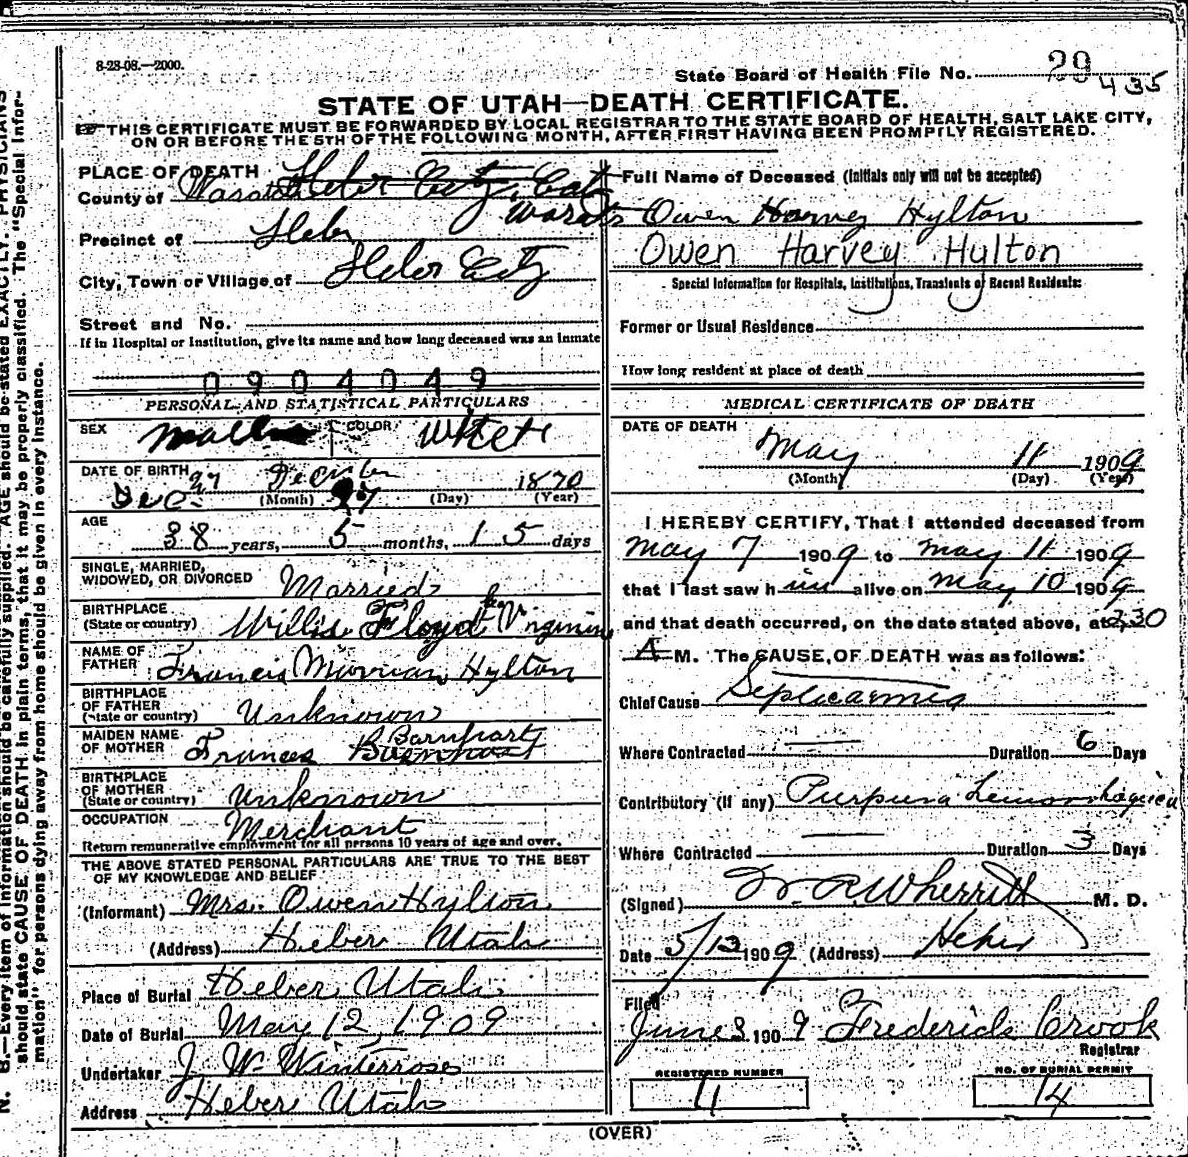 8-28-08.—2000.
State Board of Health File No. 29
435
STATE OF UTAH—DEATH CERTIFICATE.
THIS CERTIFICATE MUST BE FORWARDED BY LOCAL REGISTRAR TO THE STATE BOARD OF HEALTH, SALT LAKE CITY,
ON OR BEFORE THE 5TH OF THE FOLLOWING MONTH, AFTER FIRST HAVING BEEN PROMPTLY REGISTERED.
PLACE OF DEATH Heber City, East
County of Wasatch
Ward
Precinct of Heber
City, Town or Village of Heber City
Street and No.
If in Hospital or Institution, give its name and how long deceased was an inmate
0904049
PERSONAL AND STATISTICAL PARTICULARS
SEX Male COLOR White
DATE OF BIRTH 27 December 1870
Dec. (Month) 27 (Day) (Year)
AGE
38 years, 5 months, 15 days
SINGLE, MARRIED,
WIDOWED, OR DIVORCED Married
BIRTHPLACE
(State or country) Willis Floyd Virginia
NAME OF
FATHER Francis Hylton
BIRTHPLACE
OF FATHER
(State or country) Unknown
MAIDEN NAME Barnhart
OF MOTHER Frances
BIRTHPLACE
OF MOTHER
(State or country) Unknown
OCCUPATION Merchant
Return remunerative employment for all persons 10 years of age and over.
THE ABOVE STATED PERSONAL PARTICULARS ARE TRUE TO THE BEST
OF MY KNOWLEDGE AND BELIEF
(Informant) Mrs. Owen Hylton
(Address) Heber Utah
Place of Burial Heber Utah
Date of Burial May 12, 1909
Undertaker J. W. Winterrose
Address Heber Utah
Full Name of Deceased (Initials only will not be accepted)
Owen Harvey Hylton
Owen Harvey Hylton
Special Information for Hospitals, Institutions, Transients or Recent Residents:
Former or Usual Residence
How long resident at place of death
MEDICAL CERTIFICATE OF DEATH
DATE OF DEATH
May 11 1909
(Month) (Day) (Year)
I HEREBY CERTIFY, That I attended deceased from
May 7 1909 to May 11 1909
that I last saw him alive on May 10 1909
and that death occurred, on the date stated above, at 2:30
A M. The CAUSE OF DEATH was as follows:
Chief Cause Septicaemia
Where Contracted — Duration 6 Days
Contributory (if any) Purpura hemorrhagica
Where Contracted — Duration 3 Days
(Signed) W. R. Wherritt M. D.
Date 5/13 1909 (Address) Heber
Filed
June 3 1909 Frederick Crook
Registrar
REGISTERED NUMBER
NO. OF BURIAL PERMIT
14
(OVER)
N. B.—Every item of information should be carefully supplied. AGE should be stated EXACTLY. PHYSICIANS
should state CAUSE OF DEATH in plain terms, that it may be properly classified. The "Special Infor-
mation" for persons dying away from home should be given in every instance.